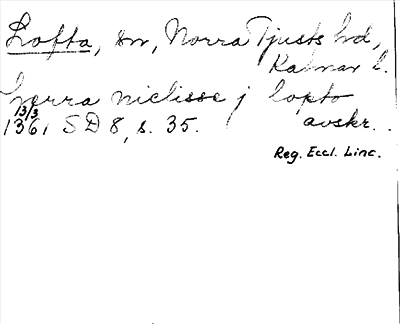 Lofta, sn, Norra Tjusts hd,
Kalmar l.
Inerra niclisse j lopto
13/3
1361 SD 8, s. 35. avskr.
Reg. Eccl. Linc.